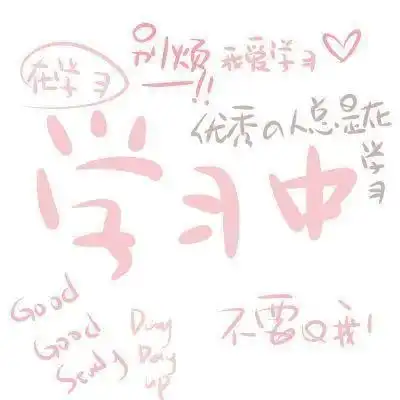 在学习
别烦
我爱学习
一!!
优秀の人总是在
学习
学习中
Good
Good
Study
Day
Day
up
不要Q我!